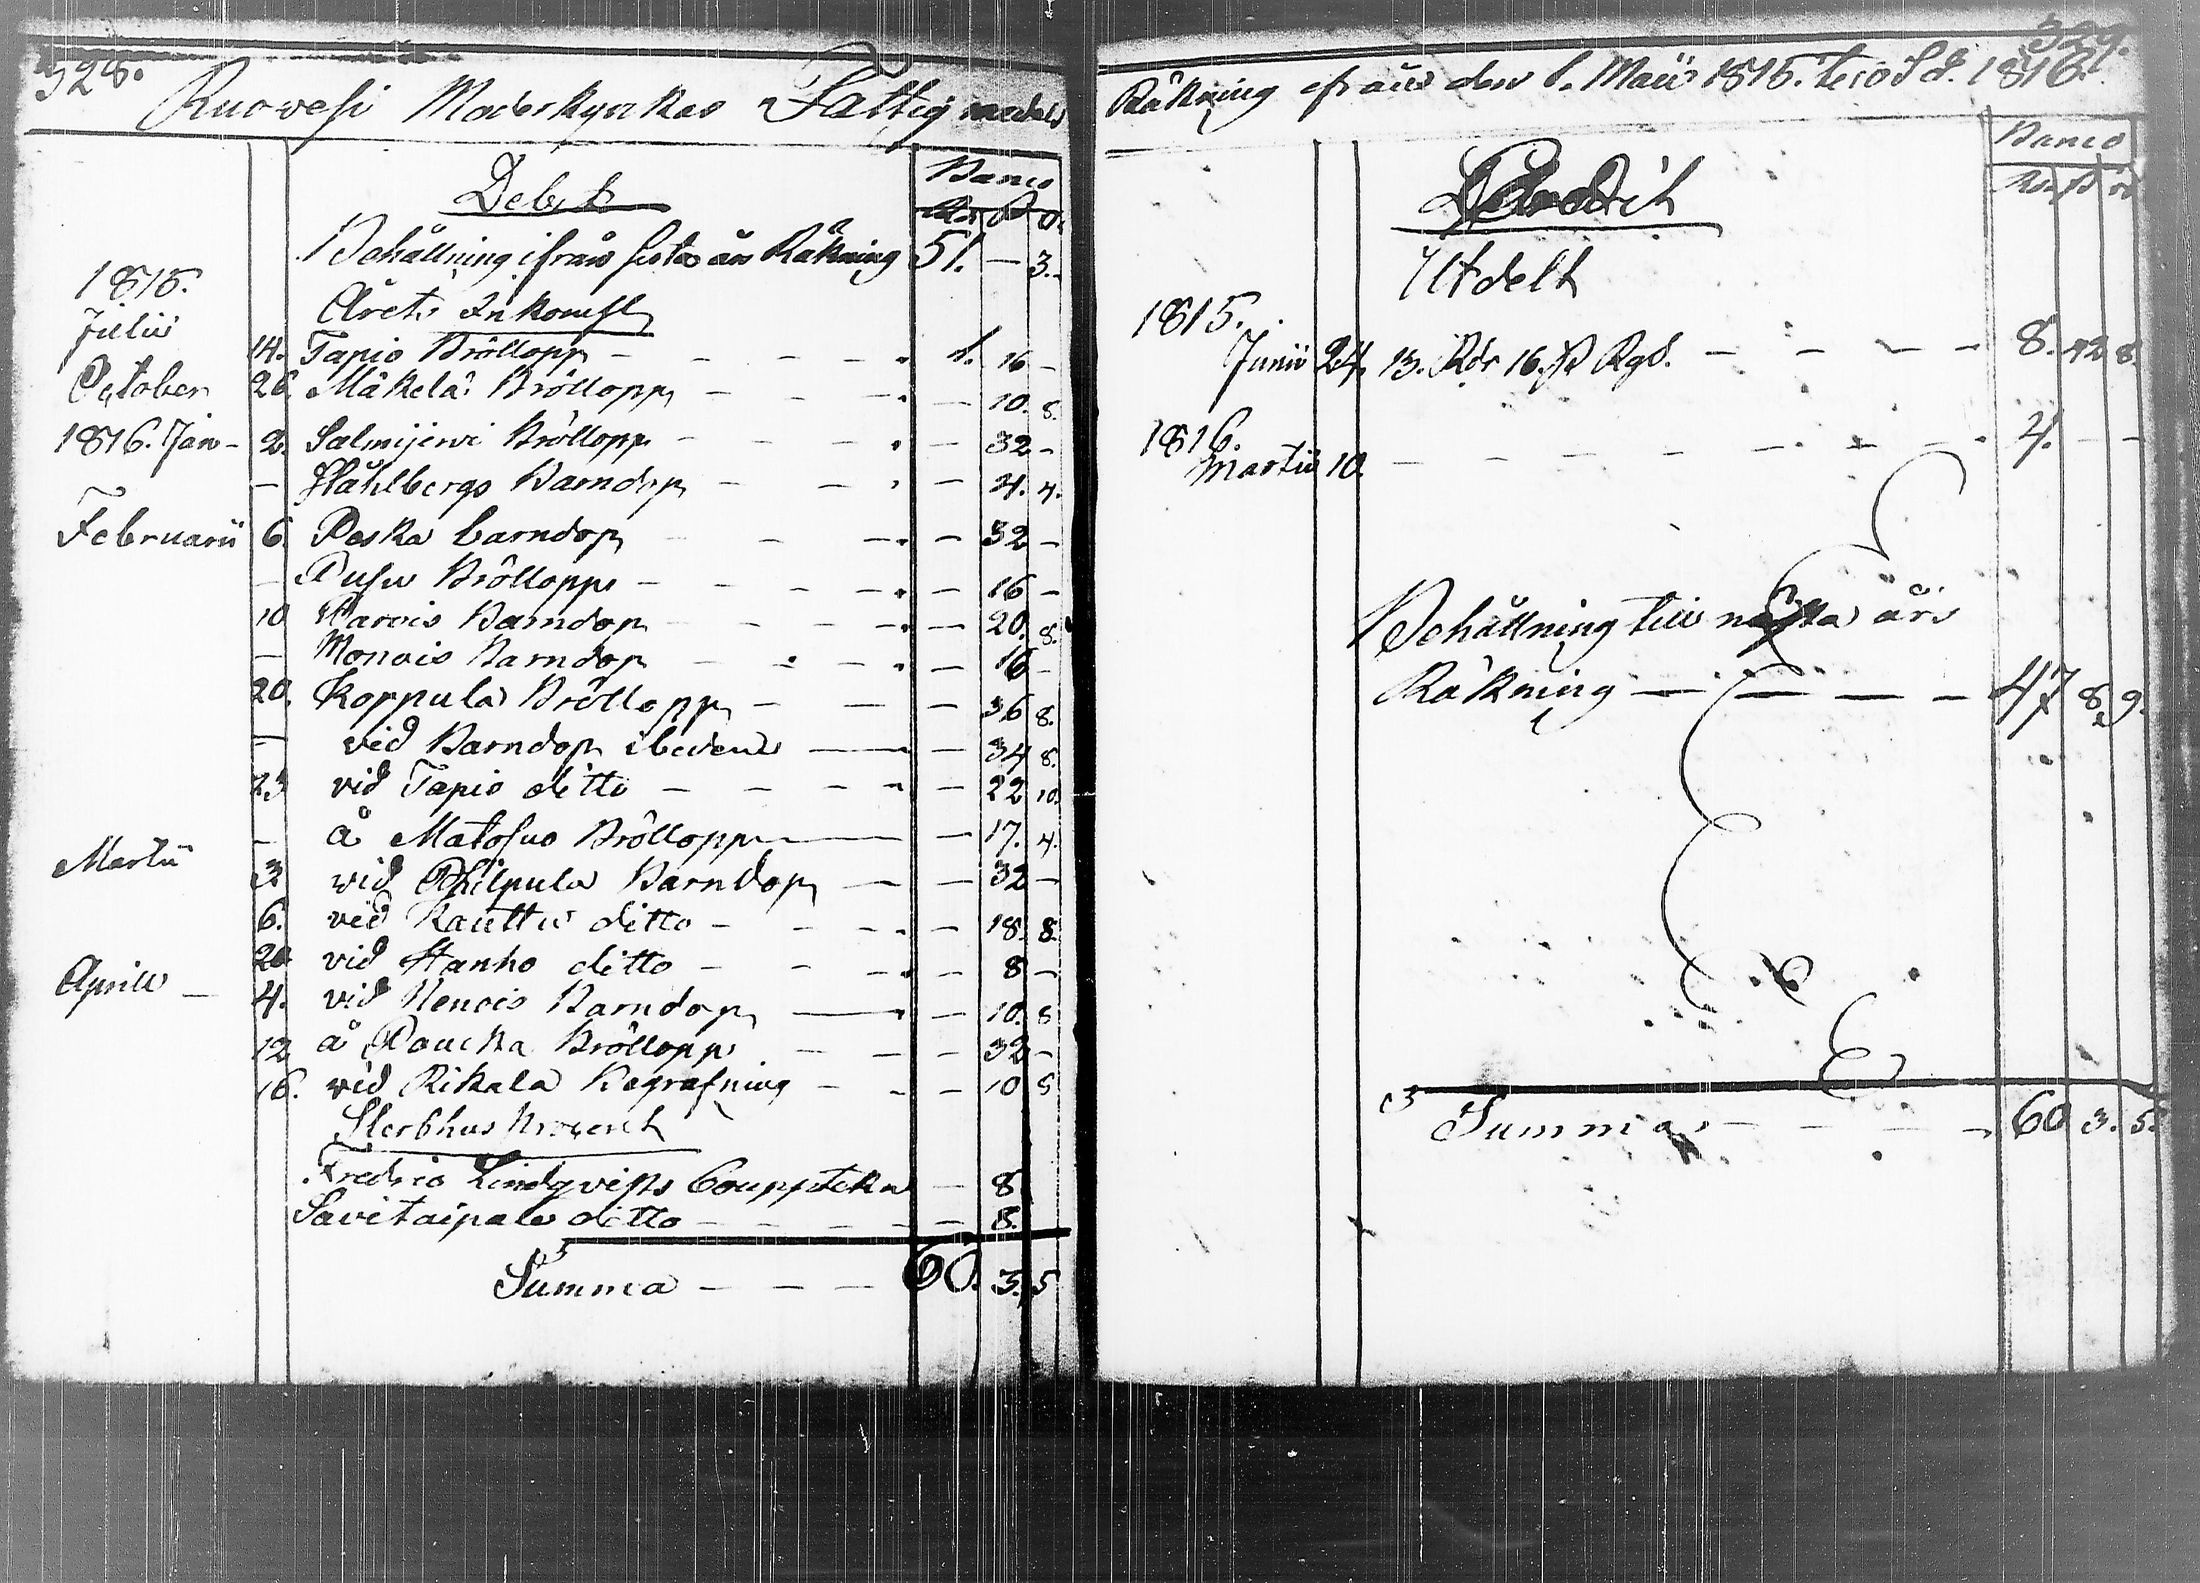 328.
Ruovesi Moderkyrkas Fattig medels
Debet
Banco
Rdr ß r.
Behållning ifrån sista års Räkning 51. - 3.
1815.
Årets Inkomst
Julii 14. Tapio Bröllopp - - - - 1. 16 -
October 26. Mäkelä Bröllopp - - - - 10. 8.
1816. Jan - 2. Salmijervi Bröllopp - - - - 32 -
- Ståhlbergs Barndop - - - - 4. 4.
Februarii 6. Peska barndop - - - - 32 -
- Pusu Bröllopp - - - - 16 -
10 Parvis Barndop - - - - 20. 8.
- Monois Barndop - - - - 16 -
20. Koppula Bröllopp - - - 36 8.
- vid Barndop ibidem - - 34 8.
23 vid Tapio ditto - - - - 22 10.
- å Matosuo Bröllopp - - 17. 4.
Martii 3 vid Philpula Barndop - - 32 -
6. vid Rauttu ditto - - - - 18. 8.
20 vid Hanho ditto - - - - 8 -
Aprill - 4. vid Nenois Barndop - - 10. 8
12 å Poucka Bröllopp - - - 32 -
16. vid Rikala Begrafning - - - 10 8
Sterbhus Procent
Fredric Lindqvists - 8
Savitaipale ditto - - - - - 8.
Summa - - - - 60. 3. 5
329.
Räkning ifrån den 1. Maii 1815. till d. 1816.
Banco
Rdr ß r
Credit
Utdelt
1815.
Junii 24. 13. Rdr 16. ß Rgs. - - - - 8. 42 8.
1816.
Martii 10. - - - - - - - 4. - -
Behållning till nästa års
Räkning - - - - 47 8. 9.
Summa - - - - 60 3. 5.